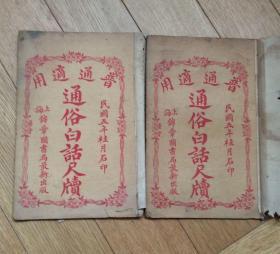 普通適用
民國五年桂月石印
通俗白話尺牘
上海錦章圖書局最新出版
普通適用
民國五年桂月石印
通俗白話尺牘
上海錦章圖書局最新出版